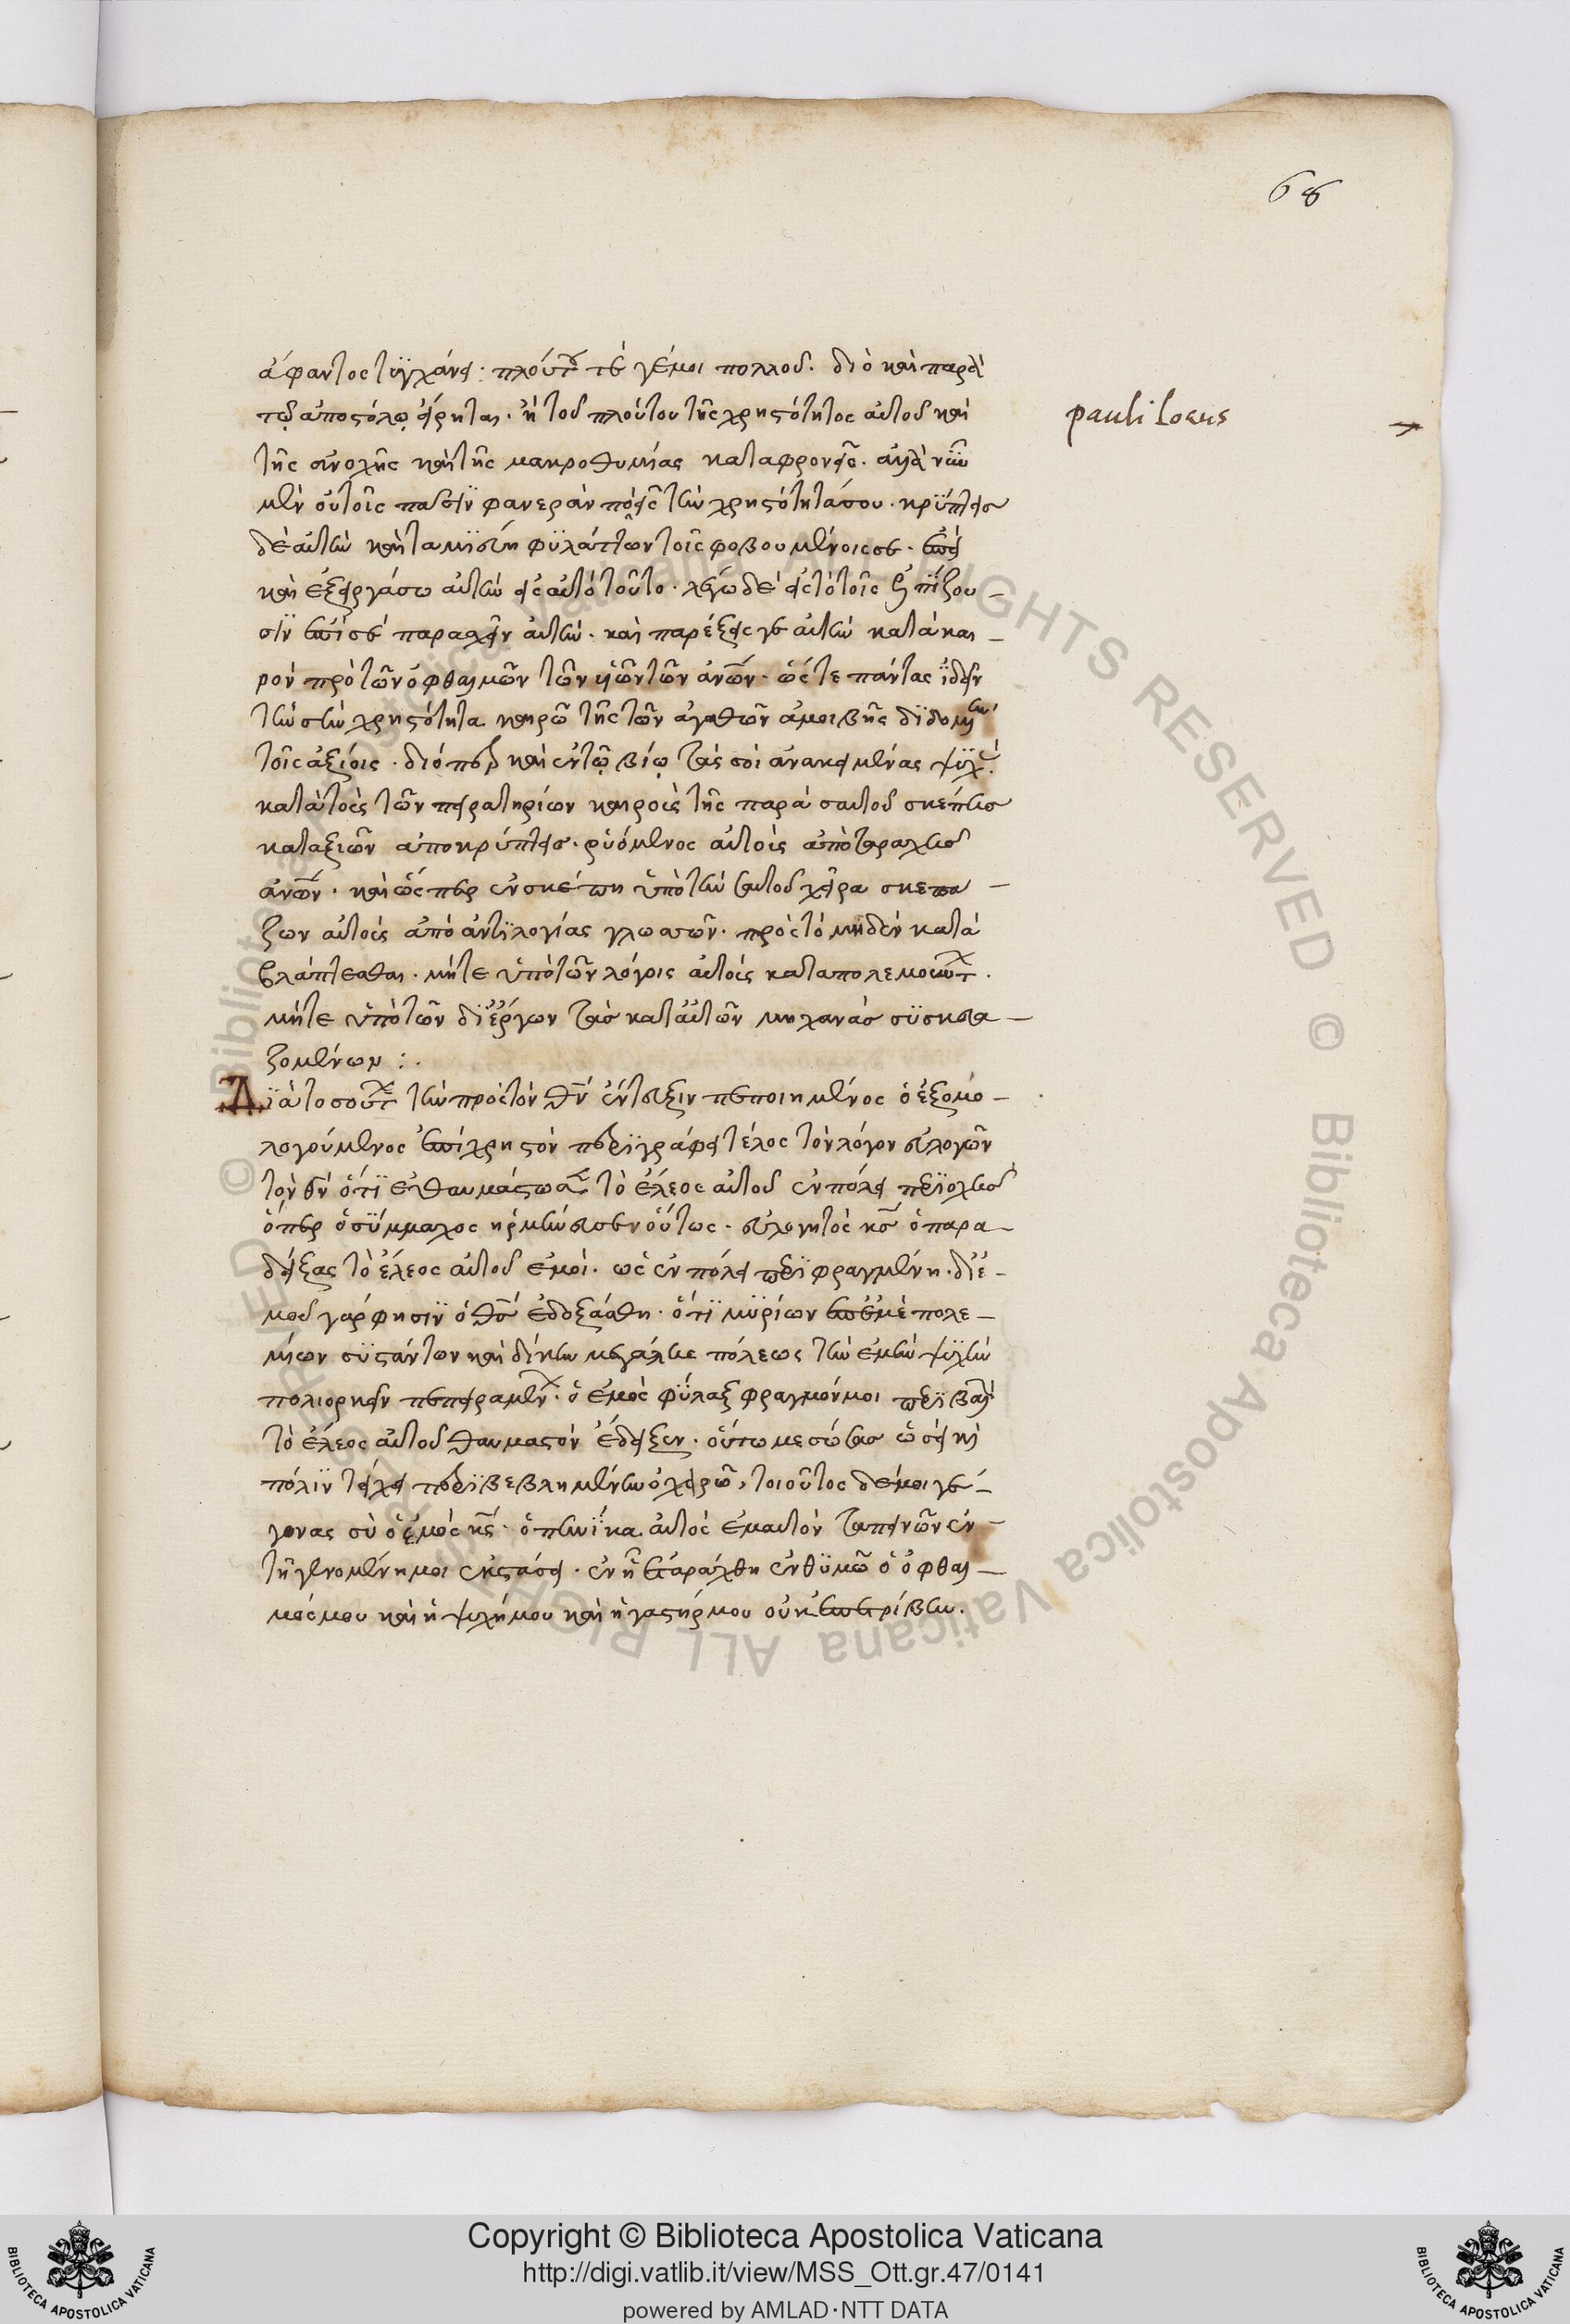 68
ἀφαντος τυγχάνει· πλούτου τε γέμοι πολλοῦ. διὸ καὶ παρὰ
τῷ ἀποστόλῳ εἴρηται· ἢ τοῦ πλούτου τῆς χρηστότητος αὐτοῦ καὶ
pauli locus
τῆς ἀνοχῆς καὶ τῆς μακροθυμίας καταφρονεῖς. ἀλλὰ νῦν
μὲν οὐ τοῖς πᾶσιν φανερὰν ποιεῖς τὴν χρηστότητά σου. κρύπτεις
δὲ αὐτὴν καὶ ταμιεύῃ φυλάττων τοῖς φοβουμένοις σε.
καὶ ἐξειργάσω αὐτὴν εἰς αὐτὸ τοῦτο. λέγω δὲ εἰς τὸ τοῖς ἐλπίζου-
σιν ἐπί σε παρασχεῖν αὐτήν. καὶ παρέξεις γε αὐτὴν κατὰ και-
ρὸν πρὸ τῶν ὀφθαλμῶν τῶν υἱῶν τῶν ἀνων. ὥστε πάντας ἰδεῖν
τὴν σὴν χρηστότητα καιρῷ τῆς τῶν ἀγαθῶν ἀμοιβῆς διδομένην
τοῖς ἀξίοις. διόπερ καὶ ἐν τῷ βίῳ τάς σοι ἀνακειμένας ψυχὰς
κατὰ τοὺς τῶν πειρατηρίων καιροὺς τῆς παρὰ σαυτοῦ σκέπης
καταξιῶν ἀποκρύπτεις. ῥυόμενος αὐτοὺς ἀπὸ ταραχῆς
ἀνων. καὶ ὥσπερ ἐν σκέπῃ ὑπὸ τὴν σαυτοῦ χεῖρα σκεπά-
ζων αὐτοὺς ἀπὸ ἀντιλογίας γλωσσῶν. πρὸς τὸ μηδὲν κατα
βλάπτεσθαι. μήτε ὑπὸ τῶν λόγοις αὐτοὺς καταπολεμούντων.
μήτε ὑπὸ τῶν δι' ἔργων τὰς κατ' αὐτῶν μηχανὰς συσκευα-
ζομένων :.
Διὰ τοσούτων τὴν πρὸς τὸν θν ἔντευξιν πεποιημένος ὁ ἐξομο-
λογούμενος ἐπὶ χρηστὸν περιγράφει τέλος τὸν λόγον εὐλογῶν
τὸν θν ὅτι ἐθαυμάστωσε τὸ ἔλεος αὐτοῦ ἐν πόλει περιοχῆς
ὅπερ ὁ σύμμαχος ἡρμήνευσεν οὕτως. εὐλογητὸς κς ὁ παρα-
δείξας τὸ ἔλεος αὐτοῦ ἐμοὶ. ὡς ἐν πόλει περιφραγμένῃ. δι' ἐ-
μοῦ γάρ φησιν ὁ θς ἐδοξάσθη. ὅτι μυρίων ἐπ' ἐμὲ πολε-
μίων συστάντων καὶ δίκην μεγάλης πόλεως τὴν ἐμὴν ψυχὴν
πολιορκεῖν πεπειραμένων. ὁ ἐμὸς φύλαξ φραγμόν μοι περιβαλὼν
τὸ ἔλεος αὐτοῦ θαυμαστὸν ἔδειξεν. οὕτω με σώσας ὡσεὶ καὶ
πόλιν τείχει περιβεβλημένην ὀχυρῷ, τοιοῦτος δέ μοι γέ-
γονας σὺ ὁ ἐμὸς κς. ὁπηνίκα αὐτὸς ἐμαυτὸν ταπεινῶν ἐν
τῇ γενομένῃ μοι ἐκστάσει. ἐν ᾗ ἐταράχθη ἐν θυμῷ ὁ ὀφθαλ-
μός μου καὶ ἡ ψυχή μου καὶ ἡ γαστήρ μου
Copyright © Biblioteca Apostolica Vaticana
http://digi.vatlib.it/view/MSS_Ott.gr.47/0141
powered by AMLAD·NTT DATA
BIBLIOTECA APOSTOLICA VATICANA
BIBLIOTECA APOSTOLICA VATICANA